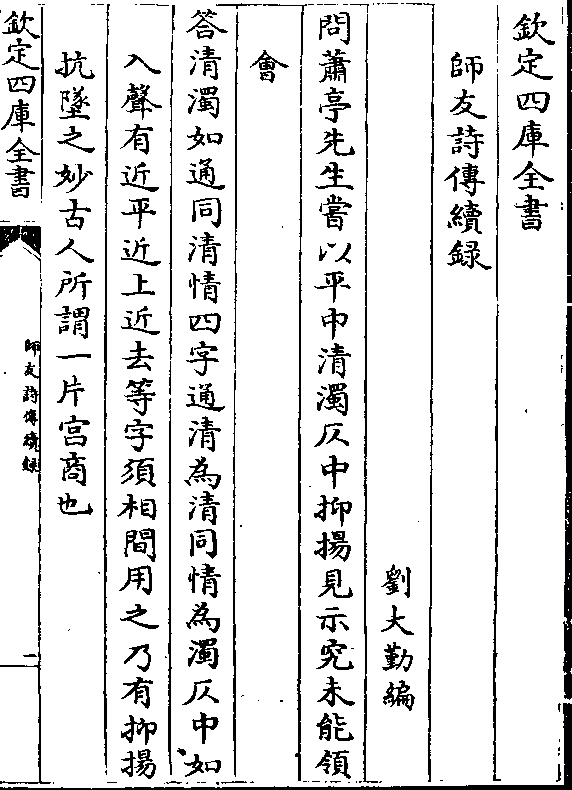 欽定四庫全書
師友詩傳續録
劉大勤編
問蕭亭先生嘗以平中清濁仄中抑揚見示究未能領
會
答清濁如通同清情四字通清為清同情為濁仄中如
入聲有近平近上近去等字須相間用之乃有抑揚
抗墜之妙古人所謂一片宫商也
欽定四庫全書
師友詩傳續録
一